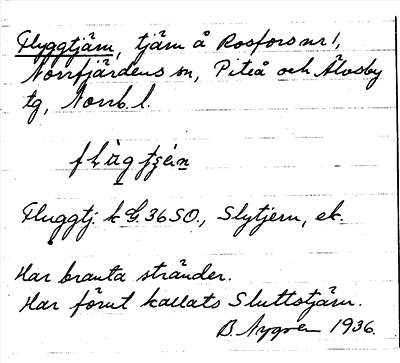 Flyggtjärn, tjärn å Rosfors nr 1,
Norrfjärdens sn, Piteå och Älvsby
tg, Norrb. l.
Fluggtj. k G. 36 SO., Slytjern, ek.
Har branta stränder.
Har förut kallats Sluttstjärn.
B. Nygren 1936.